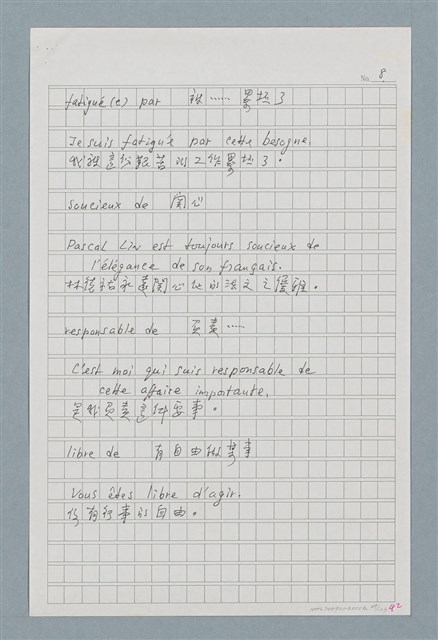 No. 8
fatigué(e) par 被……累垮了
Je suis fatigué par cette besogne.
我被這份艱苦的工作累垮了。
soucieux de 関心
Pascal Lin est toujours soucieux de
l'élégance de son français.
林德祐永遠関心他的法文之優雅。
responsable de 負責……
C'est moi qui suis responsable de
cette affaire importante.
是我負責這件要事。
libre de 有自由做某事
Vous êtes libre d'agir.
你有行事的自由。
92